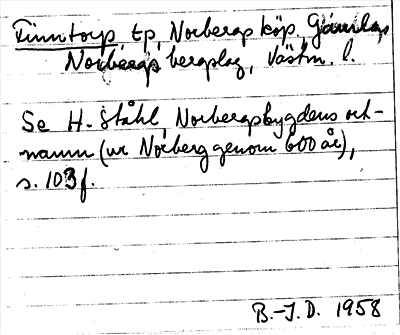 Finntorp, tp, Norbergs köp, Gamla
Norbergs bergslag, Västm. l.
Se H. Ståhl, Norbergsbygdens ort-
namn (ur Norberg genom 600 år),
s. 103 f.
B.-J.D. 1958